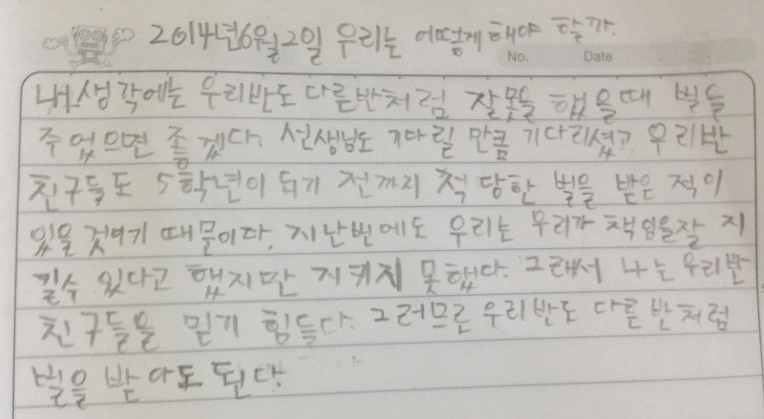 2014년6월2일 우리는 어떻게 해야 할까.
No. Date
내생각에는 우리반도 다른반처럼 잘못을 했을때 벌을
주었으면 좋겠다. 선생님도 기다릴 만큼 기다리셨고 우리반
친구들도 5학년이 되기 전까지 적당한 벌을 받은 적이
있을 것이기 때문이다. 지난번에도 우리는 우리가 책임을잘 지
킬수 있다고 했지만 지키지 못했다. 그래서 나는 우리반
친구들을 믿기 힘들다. 그러므로 우리반도 다른 반처럼
벌을 받아도 된다.